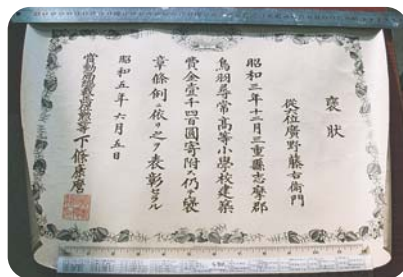 褒狀
從七位廣野藤右衛門
昭和三年十二月三重縣志摩郡
鳥羽尋常高等小學校建築
費金壹千四百圓寄附ス仍テ褒
章條例ニ依リ之ヲ表彰セラル
昭和五年六月五日
賞勳局總裁從四位勳三等下條康麿